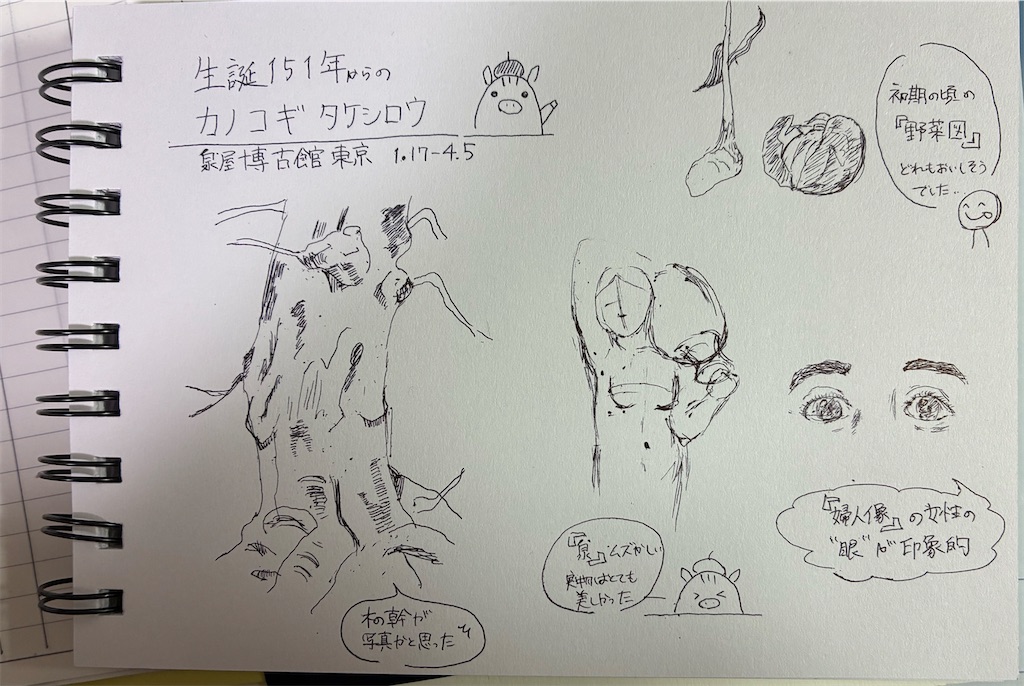 生誕151年からの
カノコギ タケシロウ
泉屋博古館東京 1.17-4.5
初期の頃の
『野菜図』
どれもおいしそう
でした..
『婦人像』の女性の
"眼"が印象的
『泉』ムズかしい
実物はとても
美しかった
木の幹が
写真かと思った